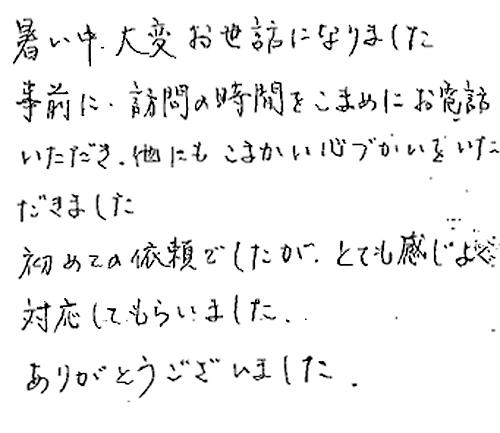 暑い中、大変お世話になりました
事前に、訪問の時間をこまめにお電話
いただき、他にもこまかい心づかいをいた
だきました
初めての依頼でしたが、とても感じよく
対応してもらいました、
ありがとうございました.